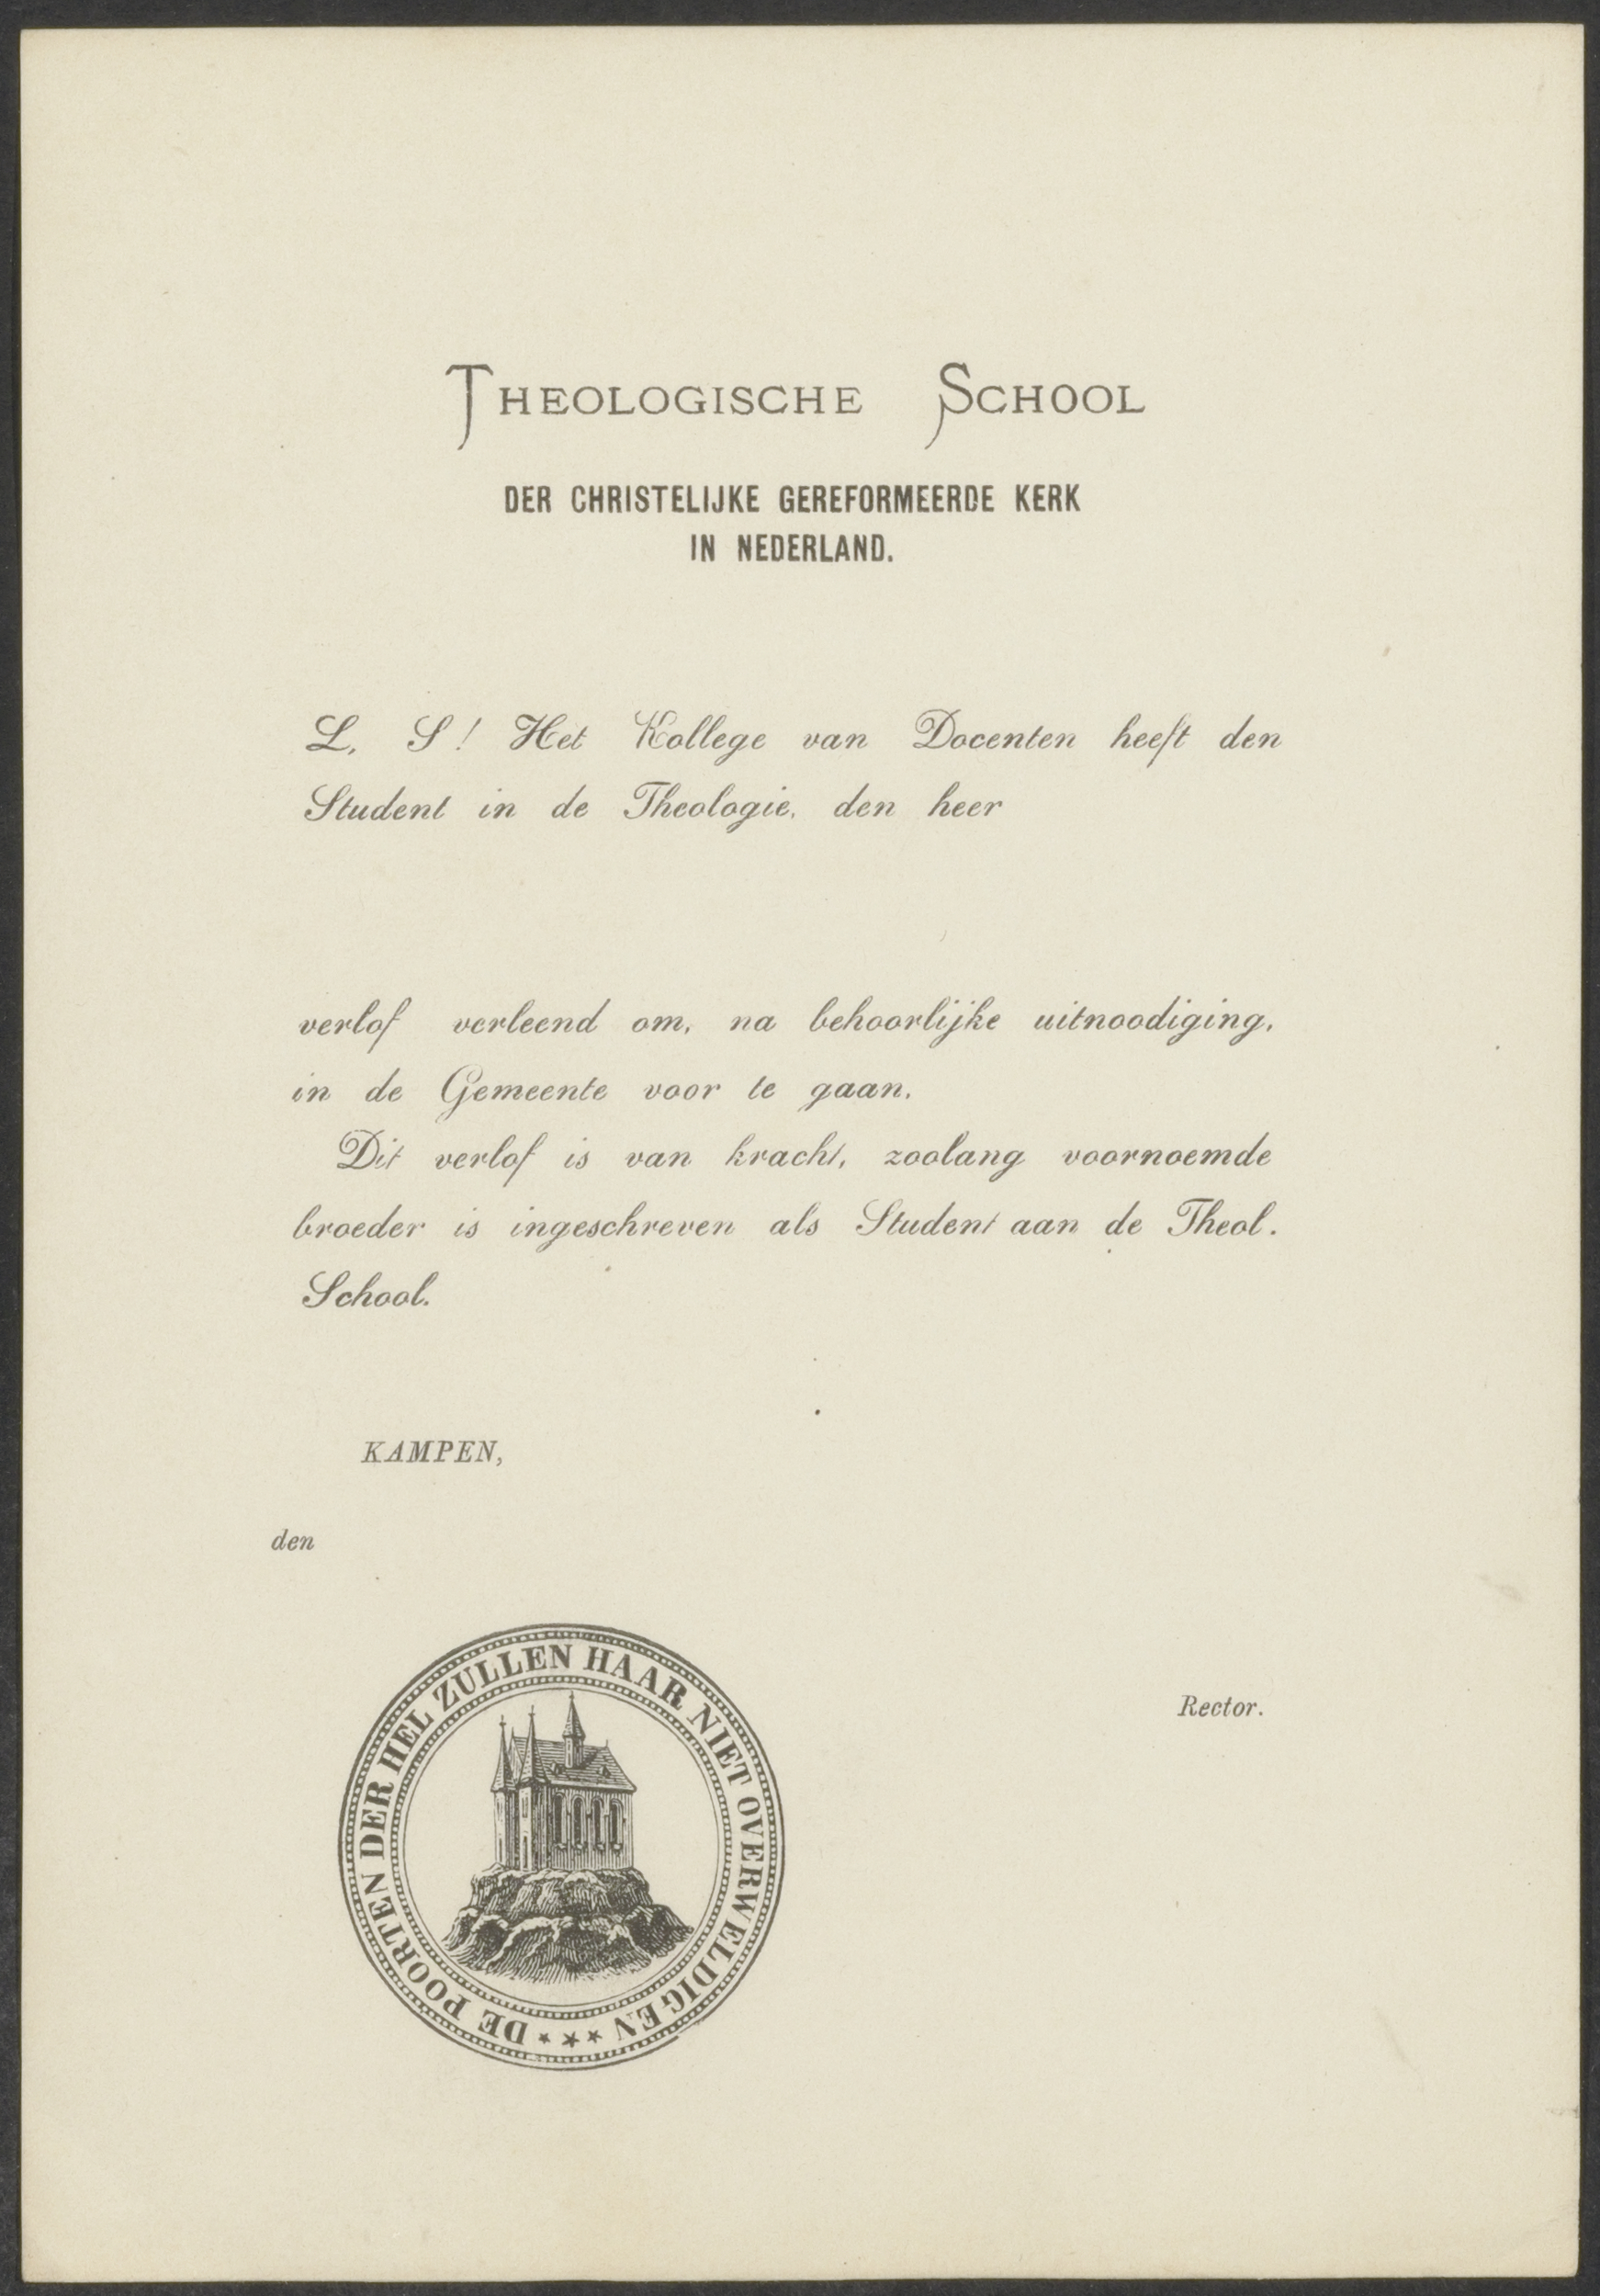 THEOLOGISCHE SCHOOL
DER CHRISTELIJKE GEREFORMEERDE KERK
IN NEDERLAND.
L. S! Het Kollege van Docenten heeft den
Student in de Theologie, den heer
verlof verleend om, na behoorlijke uitnoodiging,
in de Gemeente voor te gaan.
Dit verlof is van kracht, zoolang voornoemde
broeder is ingeschreven als Student aan de Theol.
School.
KAMPEN,
den
Rector.
DE POORTEN DER HEL ZULLEN HAAR NIET OVERWELDIGEN ***